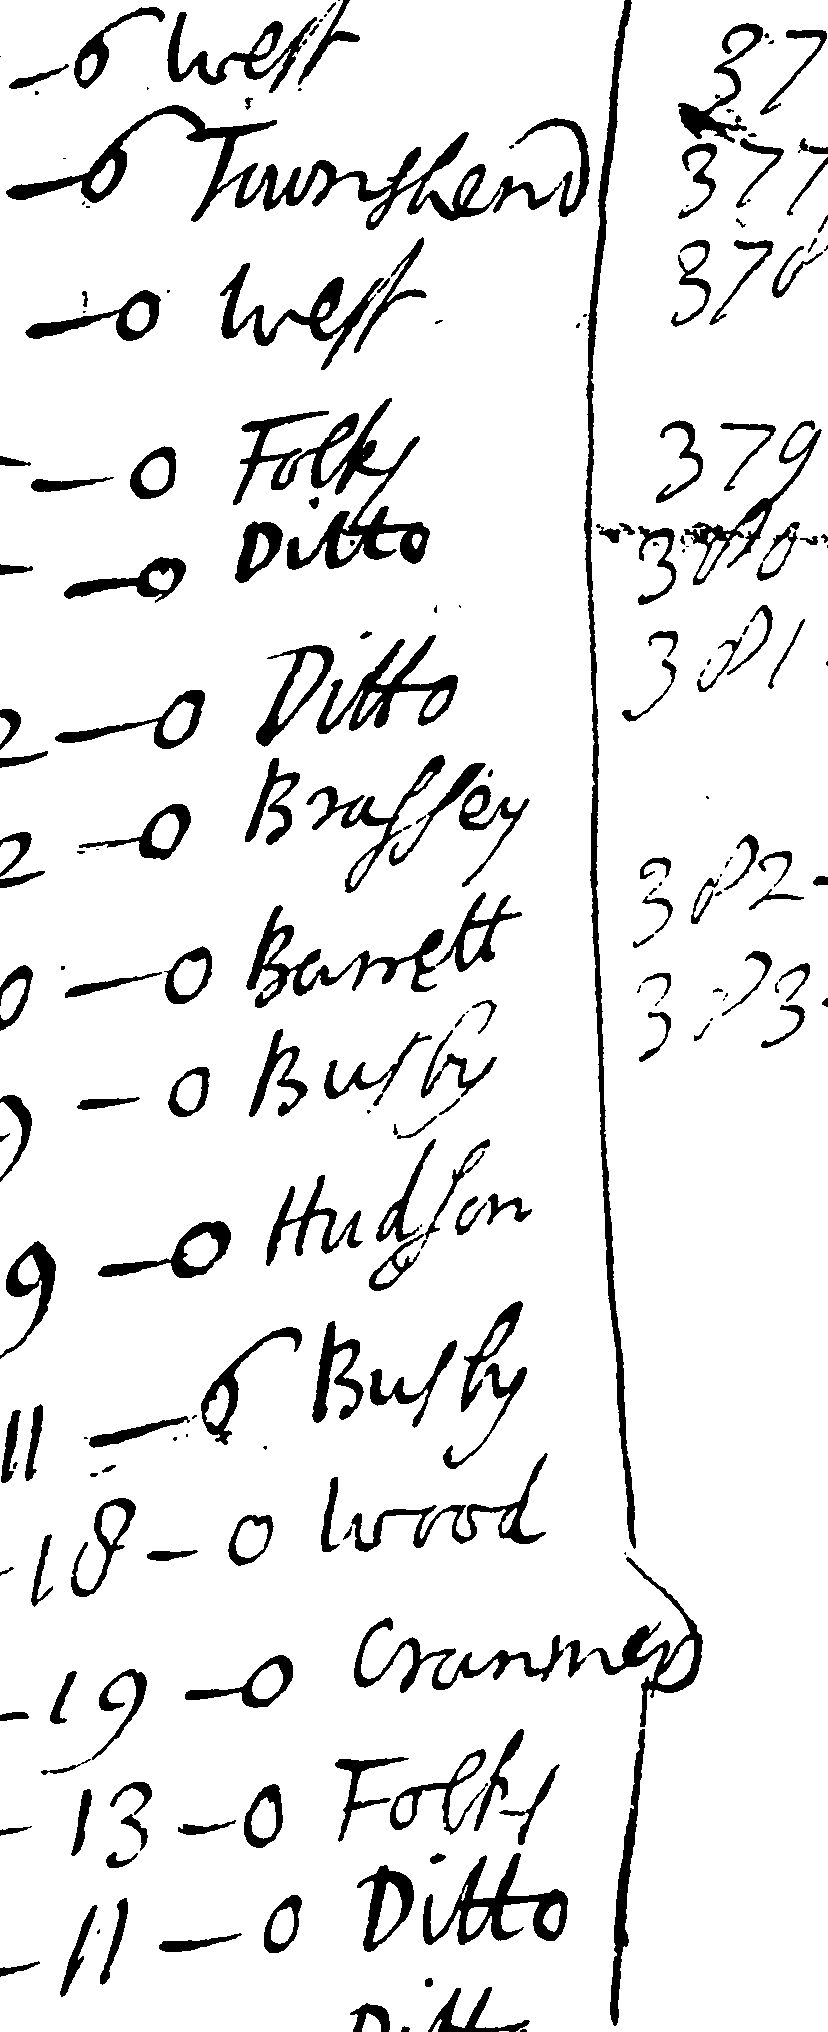 —6 West
—6 Townshend
—0 West
—0 Folks
—0 Ditto
2—0 Ditto
2—0 Brassey
0—0 Barrett
—0 Busby
9—0 Hudson
11—6 Busby
-18-0 Wood
-19-0 Cranmer
-13-0 Folks
-11-0 Ditto
Ditto
37
377
378
379
380
381
382-
383-